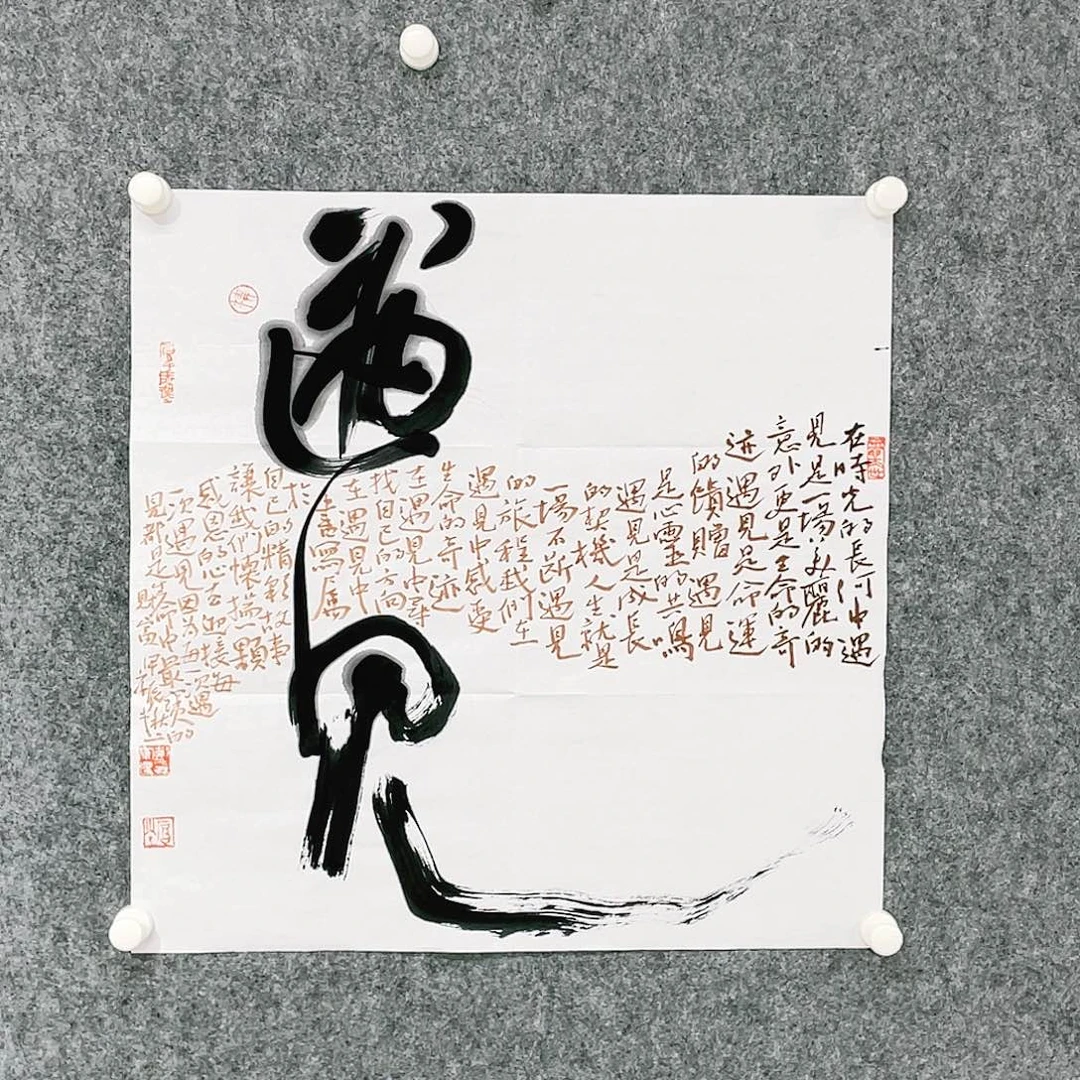 遇見
在時光的長河中遇
見是一場美麗的
意外更是生命的奇
迹遇見是命運
的饋贈遇見
是心靈的共鳴
遇見是成長
的契機人生就是
一場不斷遇見
的旅程我們在
遇見中感受
生命的奇迹
在遇見中尋
找自己的方向
在遇見中
書寫屬
於
自己的精彩故事
讓我們懷揣一顆
感恩的心去迎接每
一次遇見因為每一次遇
見都是生命中最